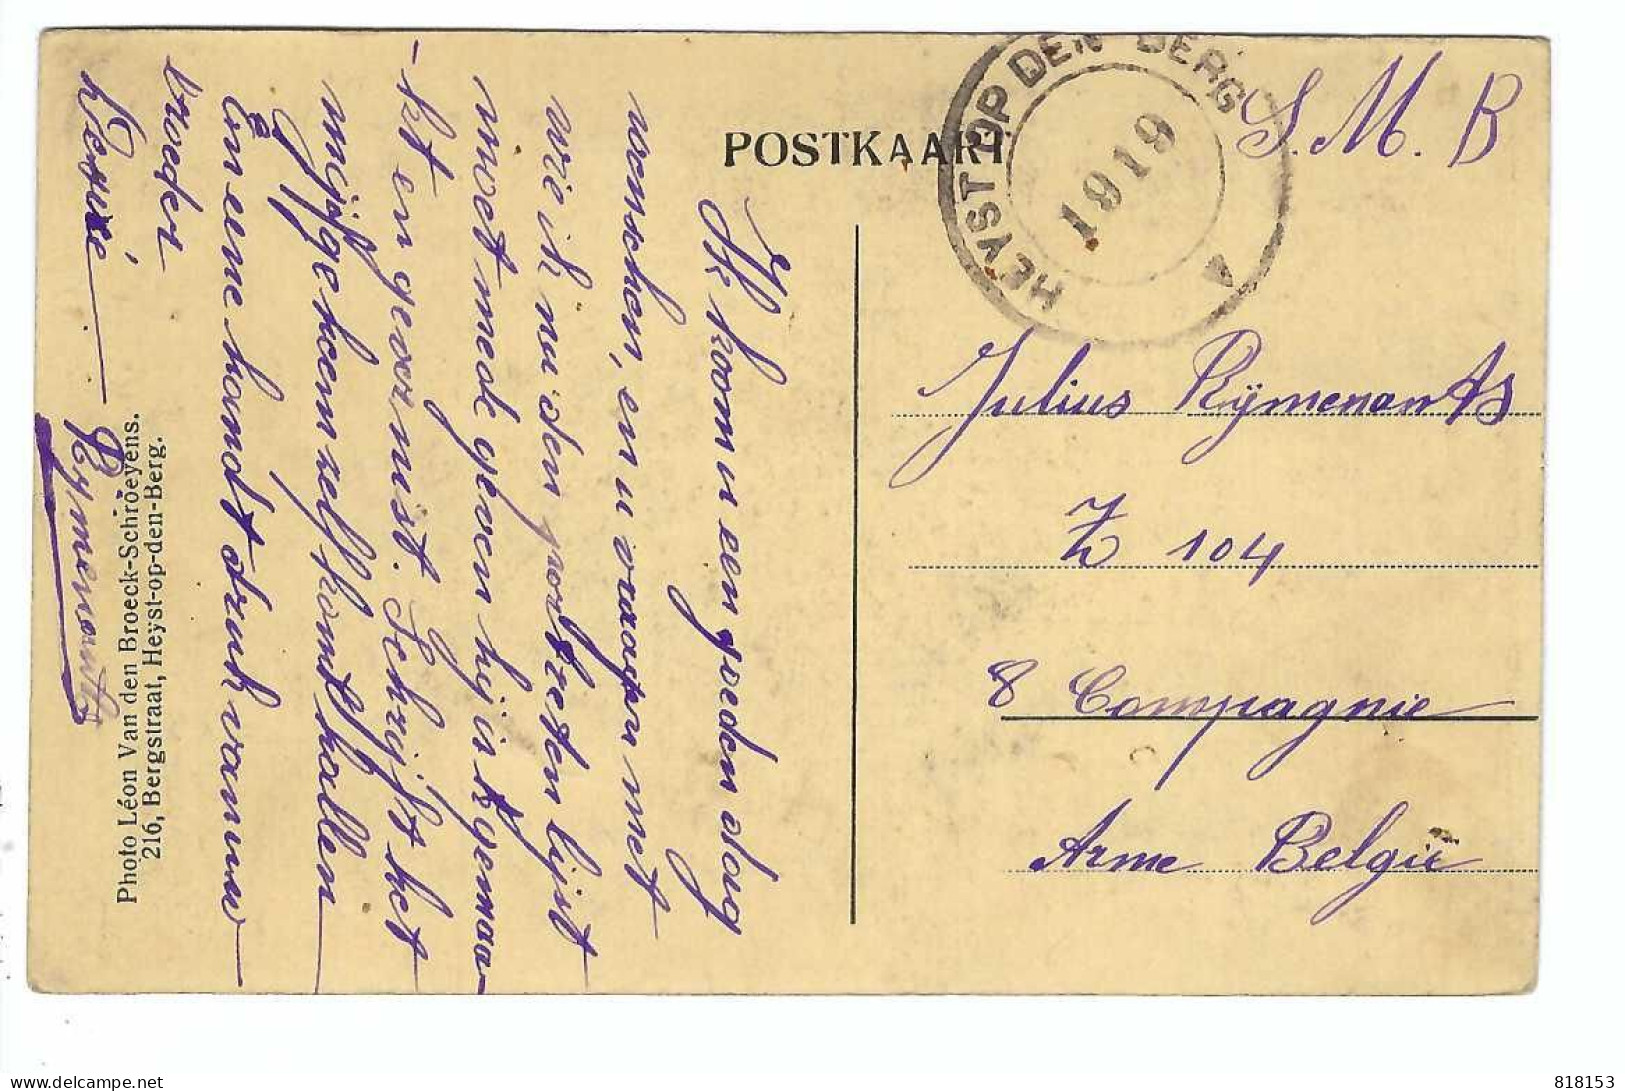 POSTKAART
HEYST OP DEN BERG
1919
A
S. M. B
Julius Rÿmenants
Z 104
8 Compagnie
Arme Belgie
Ik koom u een goeden dag
wenschen, en u vragen met
wie ik nu den
moet mede geven hij is tgemaa
-kt en geoor nist. Schrijft het
mij, ge koem zelf komt hallen
Eene handt druk van uw
broeder
Rymenants
Photo Léon Van den Broeck-Schroeyens.
216, Bergstraat, Heyst-op-den-Berg.
Delcampe.net
818153